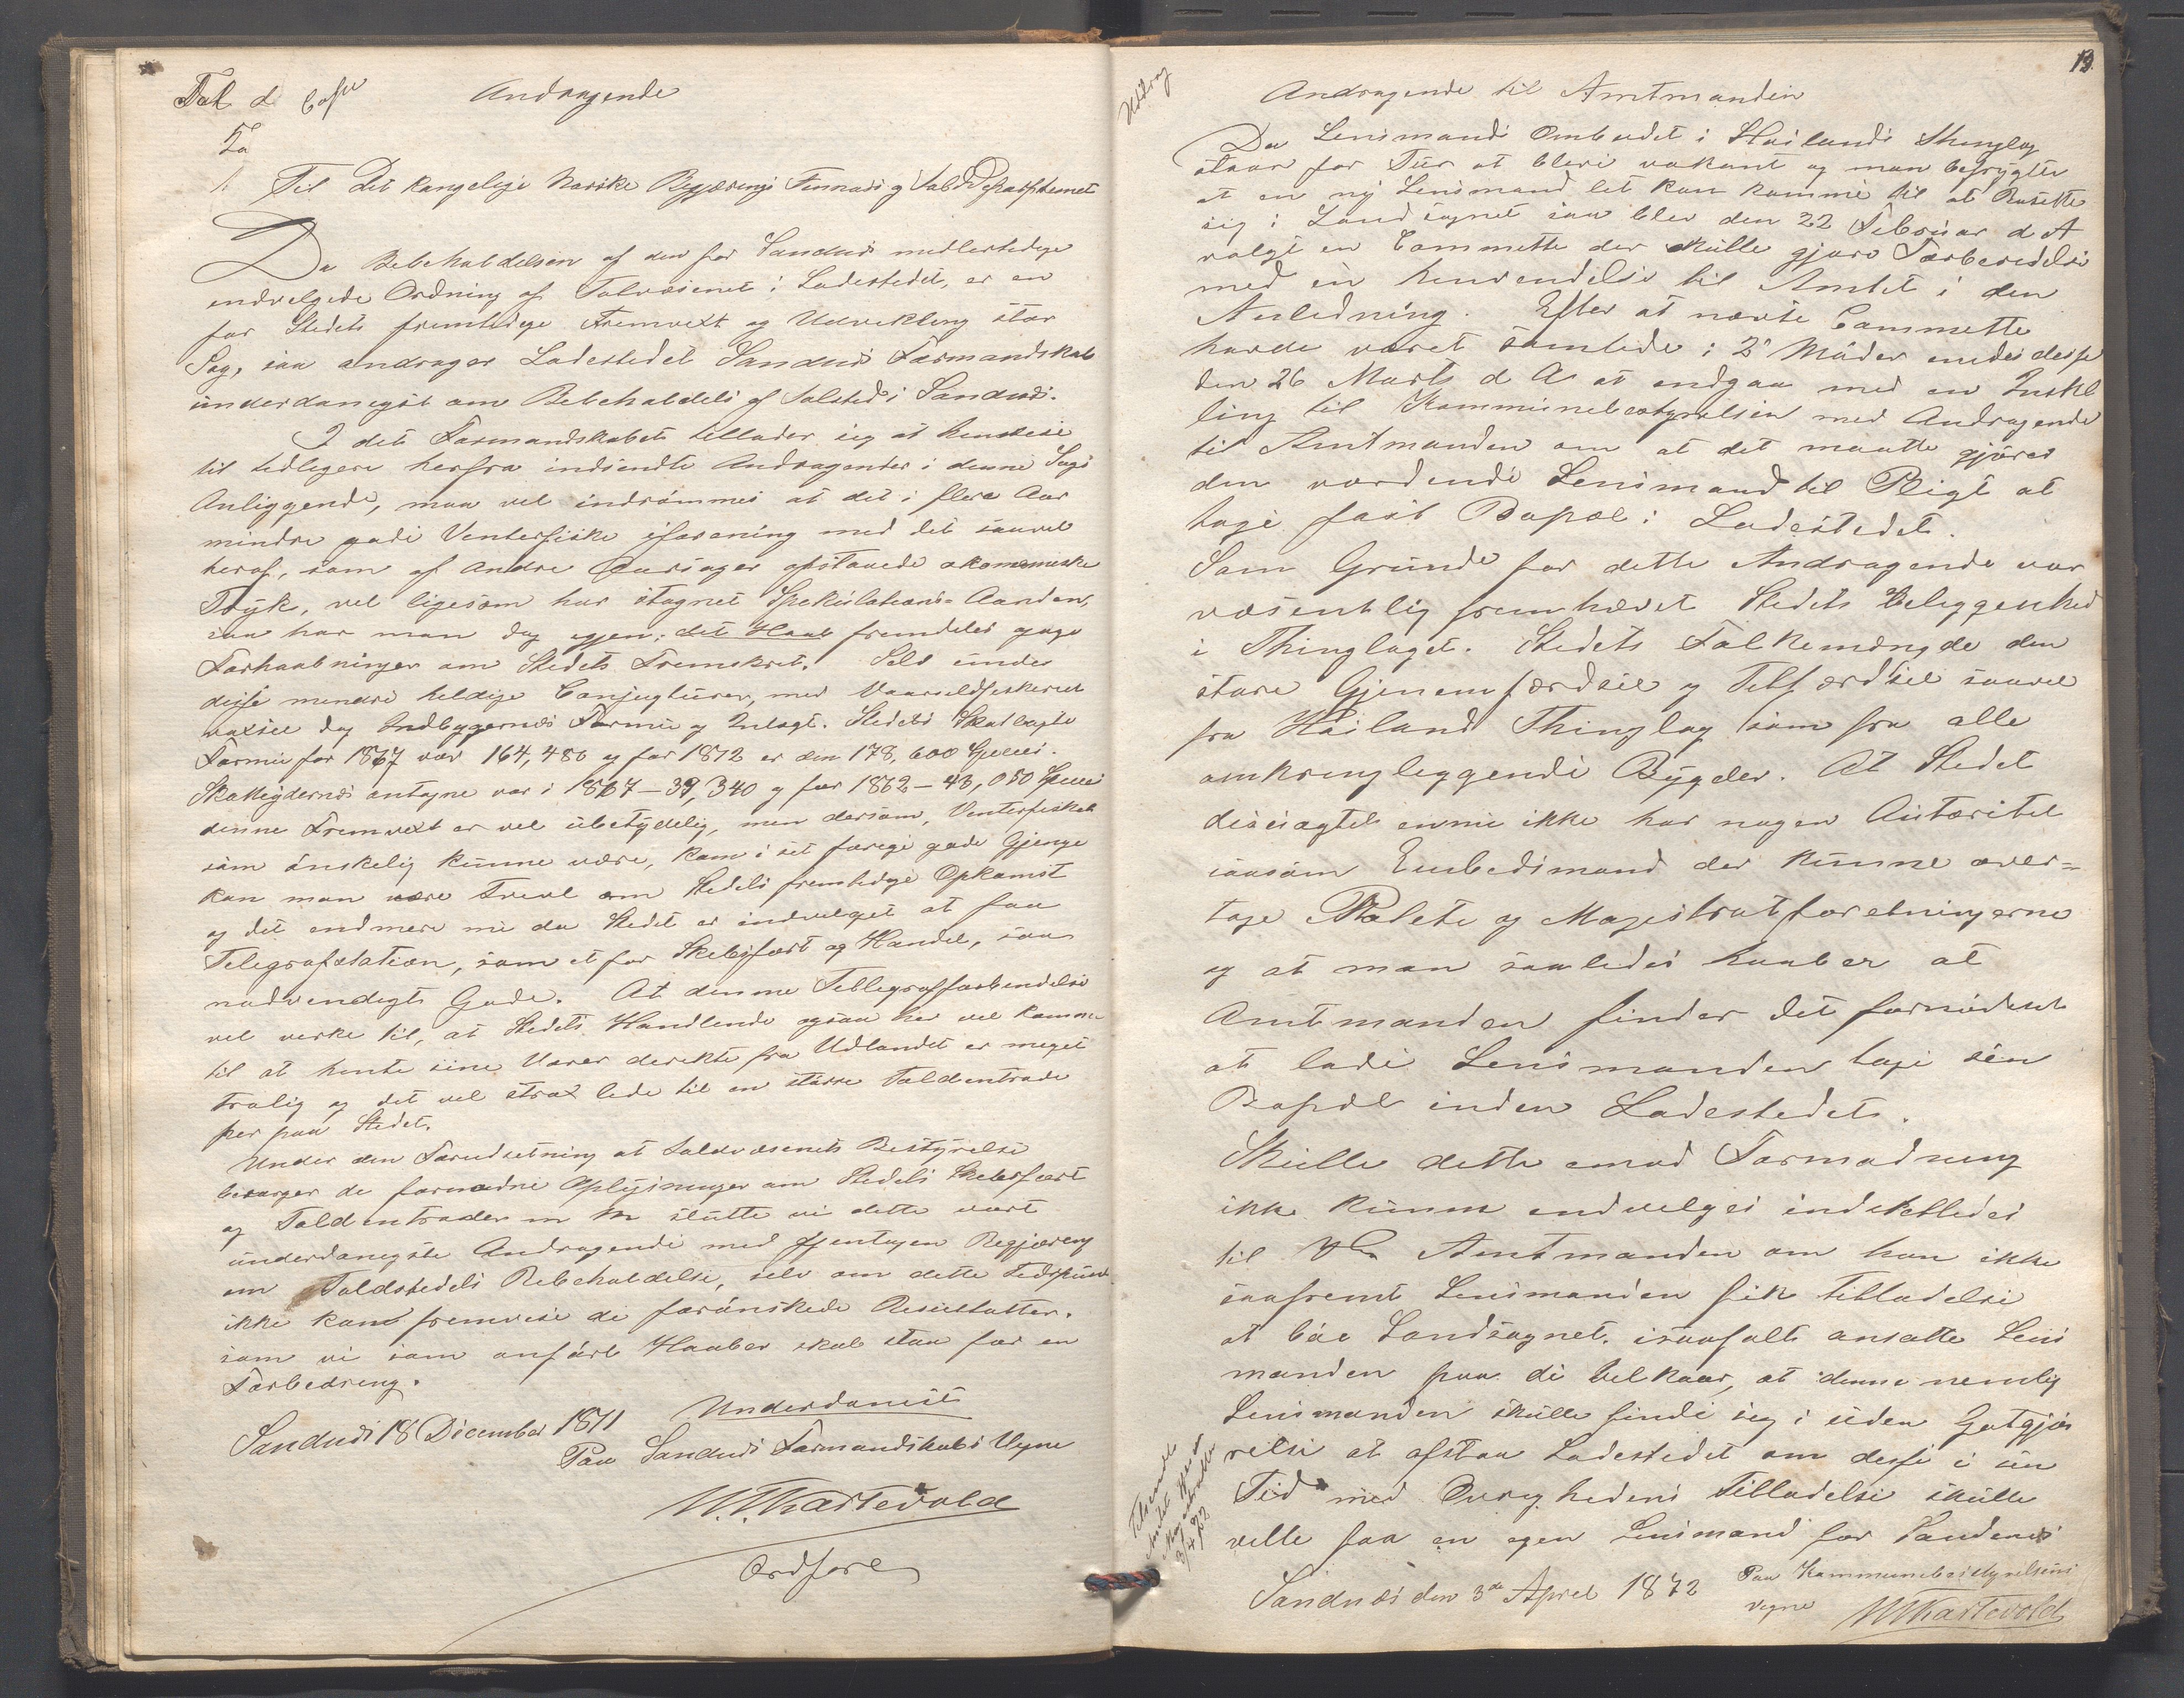 Andragende
Til Det kongelige Norske Regjerings Finnans og Told Departement
Da Bebeholdelsen af den for Sandnes midlertedige
indvelgede Ordning af Tolvæsenet i Ladestedet, er en
for Stedets fremtidige Fremvext og Udvekling stor
Sag, saa andrager Ladestedet Sandnes Formandskab
underdanegst om Bebeholdels af Tolsted i Sandnes.
I det Formandskabet tellader sig at henvise
til tidligere herfra indsendte Andragender i denne Sags
Anliggende, maa vel indrømmes at det i flere Aar
mindre gode Venterfiske iforening med det saavel
heraf, som af andre Aarsager opstaaede økonomiske
Tryk, vel ligesom har stagnet Spekulations-Aanden,
saa har man dog igjen; det Haab fremdeles gode
Forhaabninger om Stedets Fremskret. Selv under
disse mendre heldige Conjugturer, med Vaarseldfeskeriet
voxsee dog Indbygernes Formue og Indtægt. Stedets Skatlagte
Formue for 1867 var 164,480 og for 1872 er den 178,600 Species.
Skatteydernes antagne var i 1867 – 39,340 og for 1862 – 43,050 Species
denne Fremvext er vel ubetydelig, men dersom, Venterfisket
som ønskelig kunne være, kom i sit forige gode Gjenge
kan man være Treul om Stedets fremtedige Opkomst
og det endmere nu da Stedet er indvelget at faa
Telegrafstation, som et for Skebsfart og Handel, saa
nødvendigt Gode. At denne Tellegrafforbendelse
vel verke til, at Stedets Handlende ogsaa her vel komme
til at hente sine Varer derekte fra Udlandet er meget
trolig og det vel strax lede til en større Toldentrade
her paa Stedet.
Under den Forudsetning at Toldvæsenets Bestyrelse
besørger de fornødne Oplysninger om Stedets Skebsfart
og Toldentrader m m slutte vi dette vort
underdanegste Andragende med gjentagen Begjæreng
om Toldstedets Bebeholdelse, selv om dette Tidspunkt
ikke kan fremvise de forønskede Resultatter.
som vi som anført Haaber skal staa for en
Forbedreng.
Underdanest
Sandnes 18 December 1871
Paa Sandnes Formandskabs Vegne
Ordfører
13
Uddrag
Andragende til Amtmanden
Da Lensmands Ombudet i Høilands Thinglag
staar for Tur at bleve vakant og man befrygter
at en ny Lensmand let kan komme til at Bosette
sig i Landsognet saa blev den 22 Februar d A
valgt en Committe der skulle gjøre Forberedelse
med en henvendelse til Amtet i den
Anledning. Efter at nævte Committe
havde været samlede i 2 Møder enedes desse
den 26 Marts d A at endgaa med en Instel
ling til Kommunebestyrelsen med Andragende
til Amtmanden om at det maatte gjøres
den vordende Lensmand til Pligt at
tage fast Bopæl i Ladestedet.
Som Grunde for dette Andragende var
væsentlig fremhævet Stedets Beleggenhed
i Thinglaget. Stedets Folkemængde den
store Gjenemfærdsel og Telfærdsel saavel
fra Høiland Thinglag som fra alle
omkrengleggende Bygder. At Stedet
desuagtet ennu ikke har nogen Autoritet
saasom Embedsmand der kunne over-
tage Polete og Magistratforetningerne
og at man saaledes haaber at
Amtmanden finder det fornødent
at lade Lensmanden tage sin
Bopæl inden Ladestedet.
Skulle dette emod Formodning
ikke kunne endvelges indstelledes
til Amtmanden om han ikke
saafremt Lensmanden fik Telladelse
at boe Landsognet. isaafalt ansatte Lens
manden paa de Velkaar, at denne nemlig
Lensmanden skulle finde sig i uden Gotgjø
relse at afstaa Ladestedet om desse i sin
Tid med Øvreghedens Telladelse skulle
velle faa en egen Lensmand for Sandnes
Sandnes den 3de April 1872
Paa Kommunebestyrelsens
Vegne